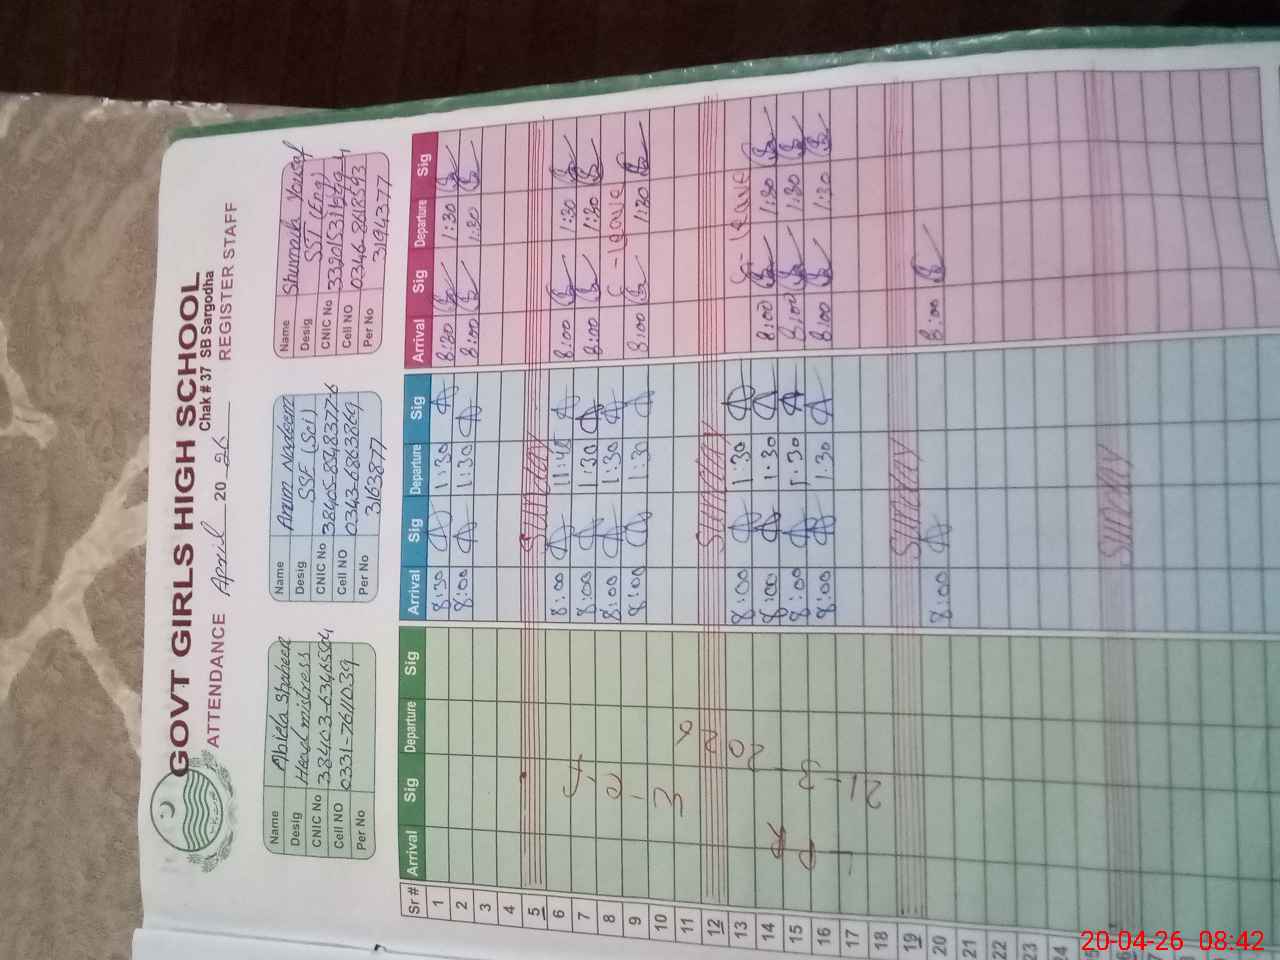 GOVT GIRLS HIGH SCHOOL
Chak # 37 SB Sargodha
ATTENDANCE April 2026 REGISTER STAFF
Name Abida Shaheen
Desig Headmistress
CNIC No
Cell NO 0331-7611039
Per No
Name Anum Nadeem
Desig SSE (Sci)
CNIC No 38405-8348372-6
Cell NO 0343-6863869
Per No 3163877
Name Shumaila Yousaf
Desig SST (Eng)
CNIC No
Cell NO 0346-8618593
Per No 3194377
Sr # Arrival Sig Departure Sig Arrival Sig Departure Sig Arrival Sig Departure Sig
1 8:30 1:30 8:30 1:30
2 8:00 1:30 8:00 1:30
3
4
5 SUNDAY
6 8:00 11:45 8:00 1:30
7 8:00 1:30 8:00 1:30
8 8:00 1:30 C-leave
9 8:00 1:30 8:00 1:30
10
11
12 SUNDAY
13 8:00 1:30 C-leave
14 8:00 1:30 8:00 1:30
15 8:00 1:30 8:00 1:30
16 8:00 1:30 8:00 1:30
17
18
19 SUNDAY
20 8:00 8:00
21
22
23
24
SUNDAY
20-04-26 08:42